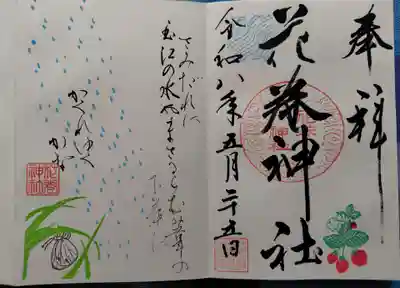 奉拝
花巻神社
令和八年五月二十五日
さみだれに
玉江の水やまさるらむ蘆の
下葉の
かくれゆく
かな